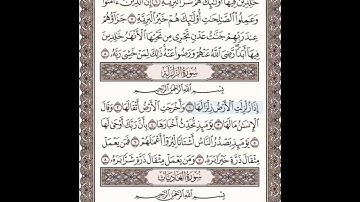 خَٰلِدِينَ فِيهَآ أُو۟لَٰٓئِكَ هُمْ شَرُّ ٱلْبَرِيَّةِ ٦ إِنَّ ٱلَّذِينَ ءَامَنُوا۟
وَعَمِلُوا۟ ٱلصَّٰلِحَٰتِ أُو۟لَٰٓئِكَ هُمْ خَيْرُ ٱلْبَرِيَّةِ ٧ جَزَآؤُهُمْ
عِندَ رَبِّهِمْ جَنَّٰتُ عَدْنٍ تَجْرِى مِن تَحْتِهَا ٱلْأَنْهَٰرُ خَٰلِدِينَ
فِيهَآ أَبَدًا رَّضِىَ ٱللَّهُ عَنْهُمْ وَرَضُوا۟ عَنْهُ ذَٰلِكَ لِمَنْ خَشِىَ رَبَّهُۥ ٨
سُورَةُ الزَّلْزَلَةِ
بِسْمِ ٱللَّهِ ٱلرَّحْمَٰنِ ٱلرَّحِيمِ
إِذَا زُلْزِلَتِ ٱلْأَرْضُ زِلْزَالَهَا ١ وَأَخْرَجَتِ ٱلْأَرْضُ أَثْقَالَهَا ٢ وَقَالَ
ٱلْإِنسَٰنُ مَا لَهَا ٣ يَوْمَئِذٍ تُحَدِّثُ أَخْبَارَهَا ٤ بِأَنَّ رَبَّكَ أَوْحَىٰ لَهَا
٥ يَوْمَئِذٍ يَصْدُرُ ٱلنَّاسُ أَشْتَاتًا لِّيُرَوْا۟ أَعْمَٰلَهُمْ ٦ فَمَن يَعْمَلْ
مِثْقَالَ ذَرَّةٍ خَيْرًا يَرَهُۥ ٧ وَمَن يَعْمَلْ مِثْقَالَ ذَرَّةٍ شَرًّا يَرَهُۥ ٨
سُورَةُ العَادِيَاتِ
بِسْمِ ٱللَّهِ ٱلرَّحْمَٰنِ ٱلرَّحِيمِ